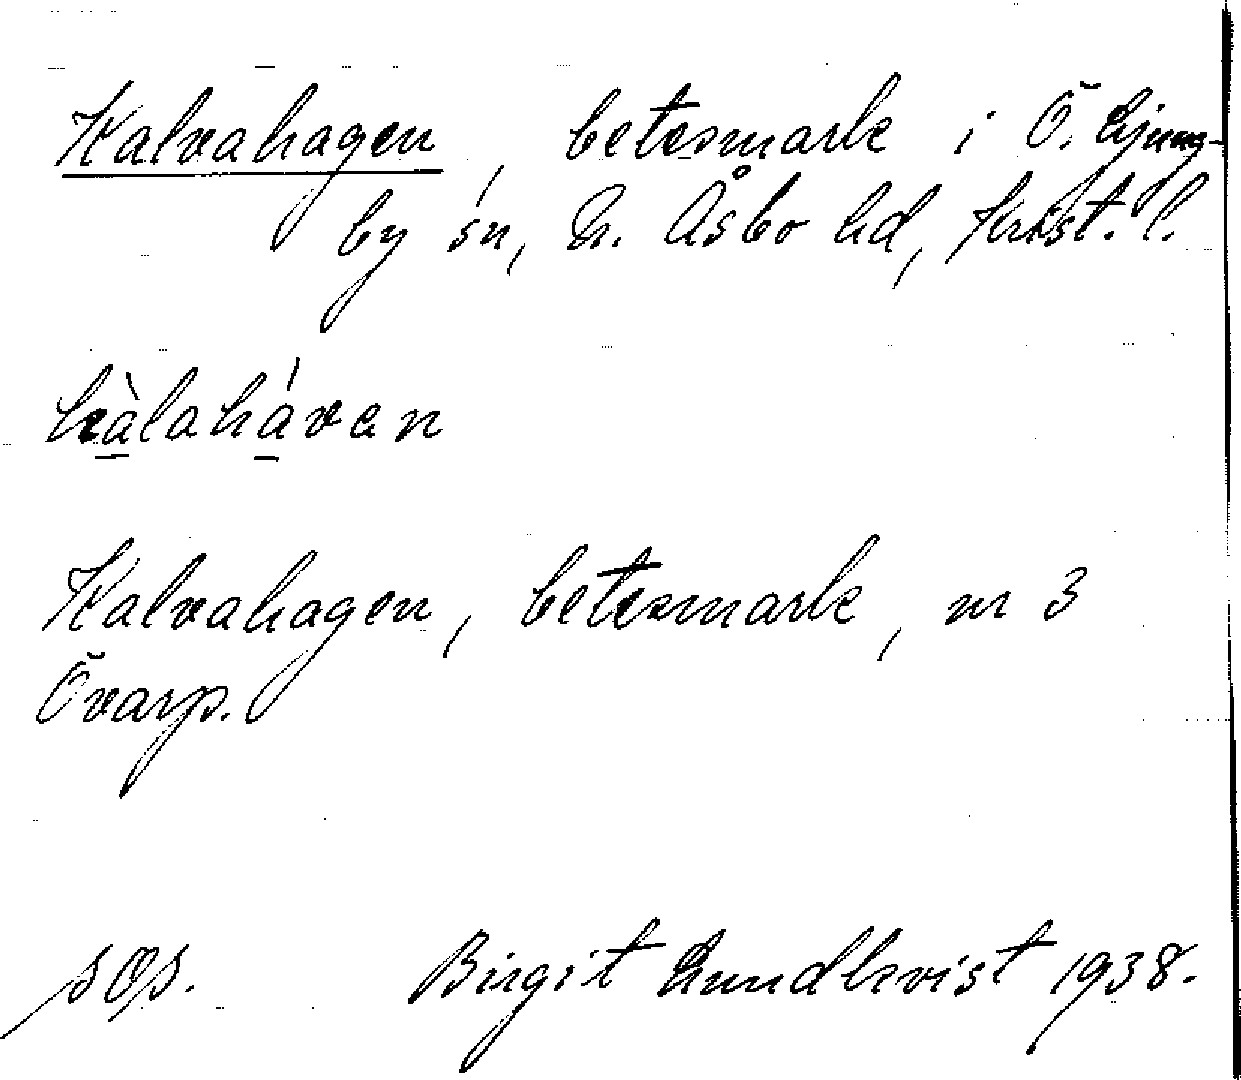 Kalvahagen, betesmark i Ö. Ljung-
by sn, N. Åsbo hd, Krist. l.
kàlahávan
Kalvahagen, betesmark, nr 3
Övarp.
Birgit Lundkvist 1938.